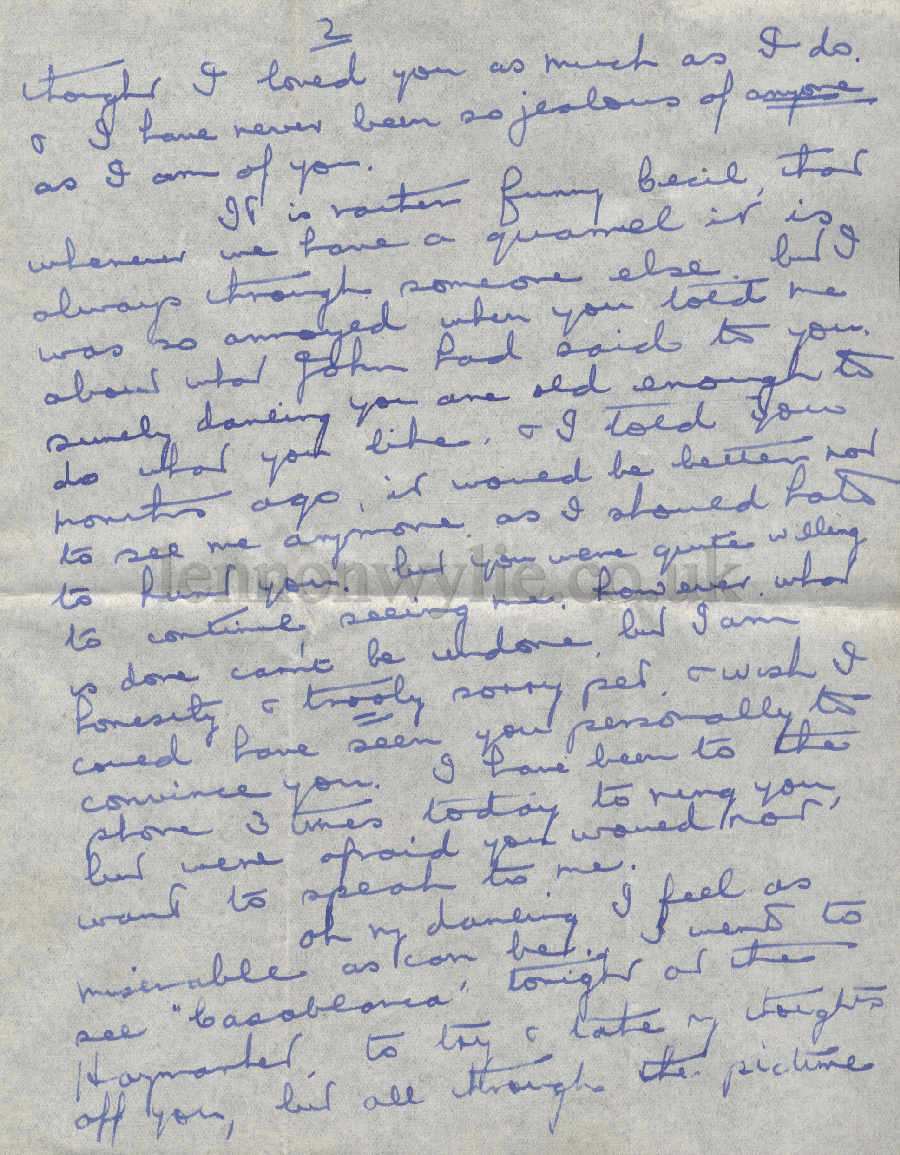 2
though I loved you as much as I do.
& I have never been so jealous of anyone
as I am of you.
It is rather funny Cecil, that
whenever we have a quarrel it is
always through someone else. but I
was so annoyed when you told me
about what John had said to you.
surely darling you are old enough to
do what you like. & I told you
months ago, it would be better not
to see me anymore. as I should hate
to hurt you. but you were quite willing
to continue seeing me. however. what
is done can't be undone, but I am
honestly & trooly sorry pet. & wish I
could have seen you personally to
convince you. I have been to the
phone 3 times today to ring you
but were afraid you would not
want to speak to me.
oh my darling, I feel as
miserable as can be. I went to
see "Casablanca", tonight at the
Haymarket, to try & take my thoights
off you, but all through the picture
lennonwylie.co.uk